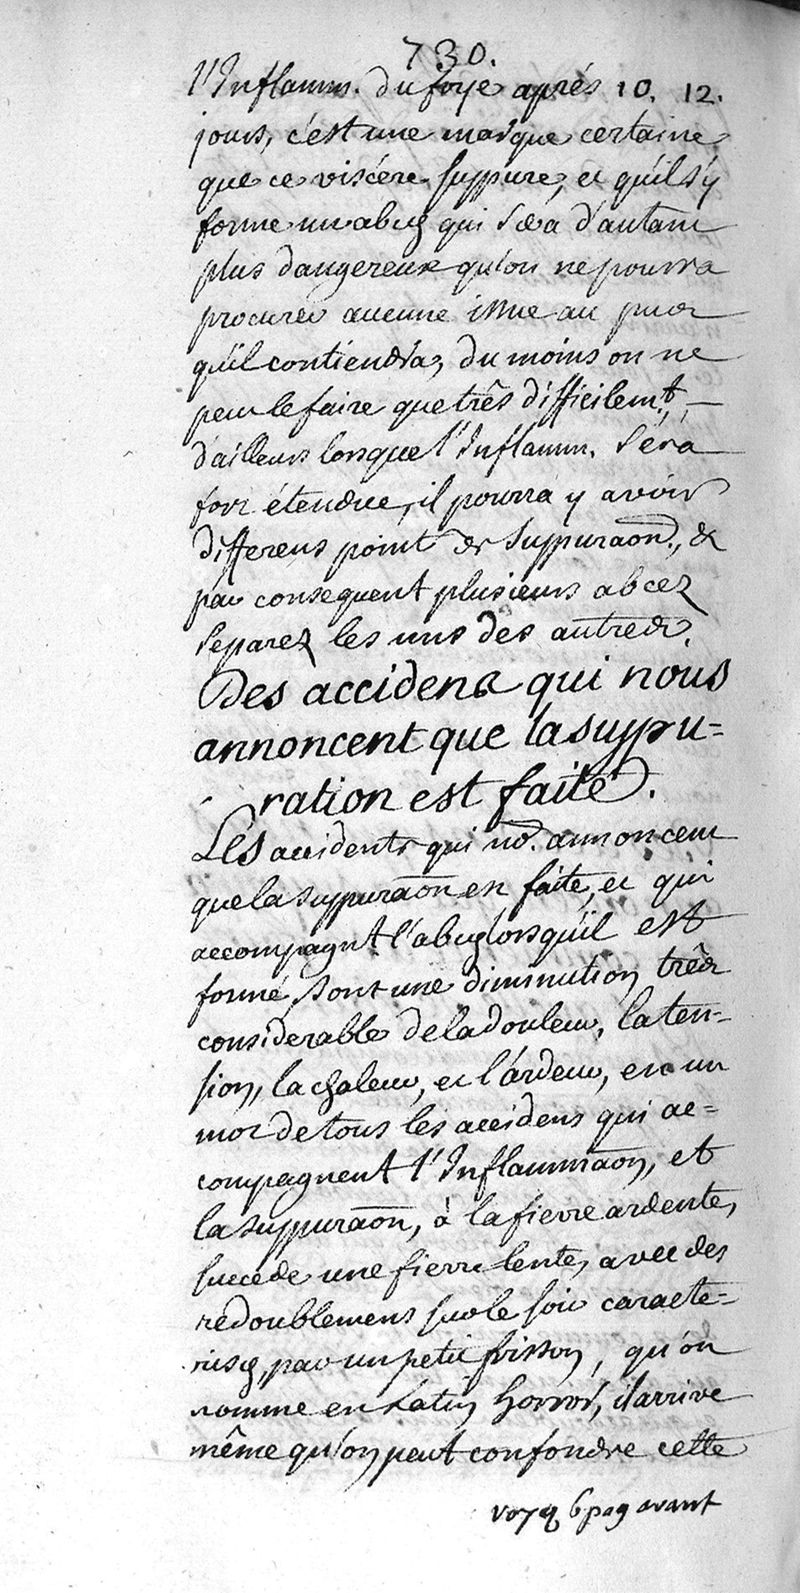 730.
l'Inflamm. du foye aprés 10. 12.
jours, c'est une marque certaine
que ce viscére suppure, et qu'il s'y
forme un abcez qui sera d'autant
plus dangereux qu'on ne pourra
procurer aucune issue au pus
qu'il contiendra, du moins on ne
peut le faire que três difficilemt., —
d'ailleurs lorsque l'Inflamm. séra
fort étendue, il pourra y avoir
differens point de suppuraon., &
par consequent plusieurs abcez
separez les uns des autres.
Des accidens qui nous
annoncent que la suppu=
ration est faite.
Les accidents qui no. annoncent
que la suppuraon est faite, et qui
accompagnt l'abcez lorsqu'il est
formé, sont une diminution três
considerable de la douleur, la ten-
sion, la chaleur, et l'ardeur, en un
mot de tous les accidens qui ac=
compagnent l'Inflammaon, et
la suppuraon, à la fievre ardente,
succede une fievre lente, avec des
redoublemens sur le soir caracte=
risez, par un petit frisson, qu'on
nomme en Latin horror, il arrive
même qu'on peut confondre cette
voyez 6 pag avant